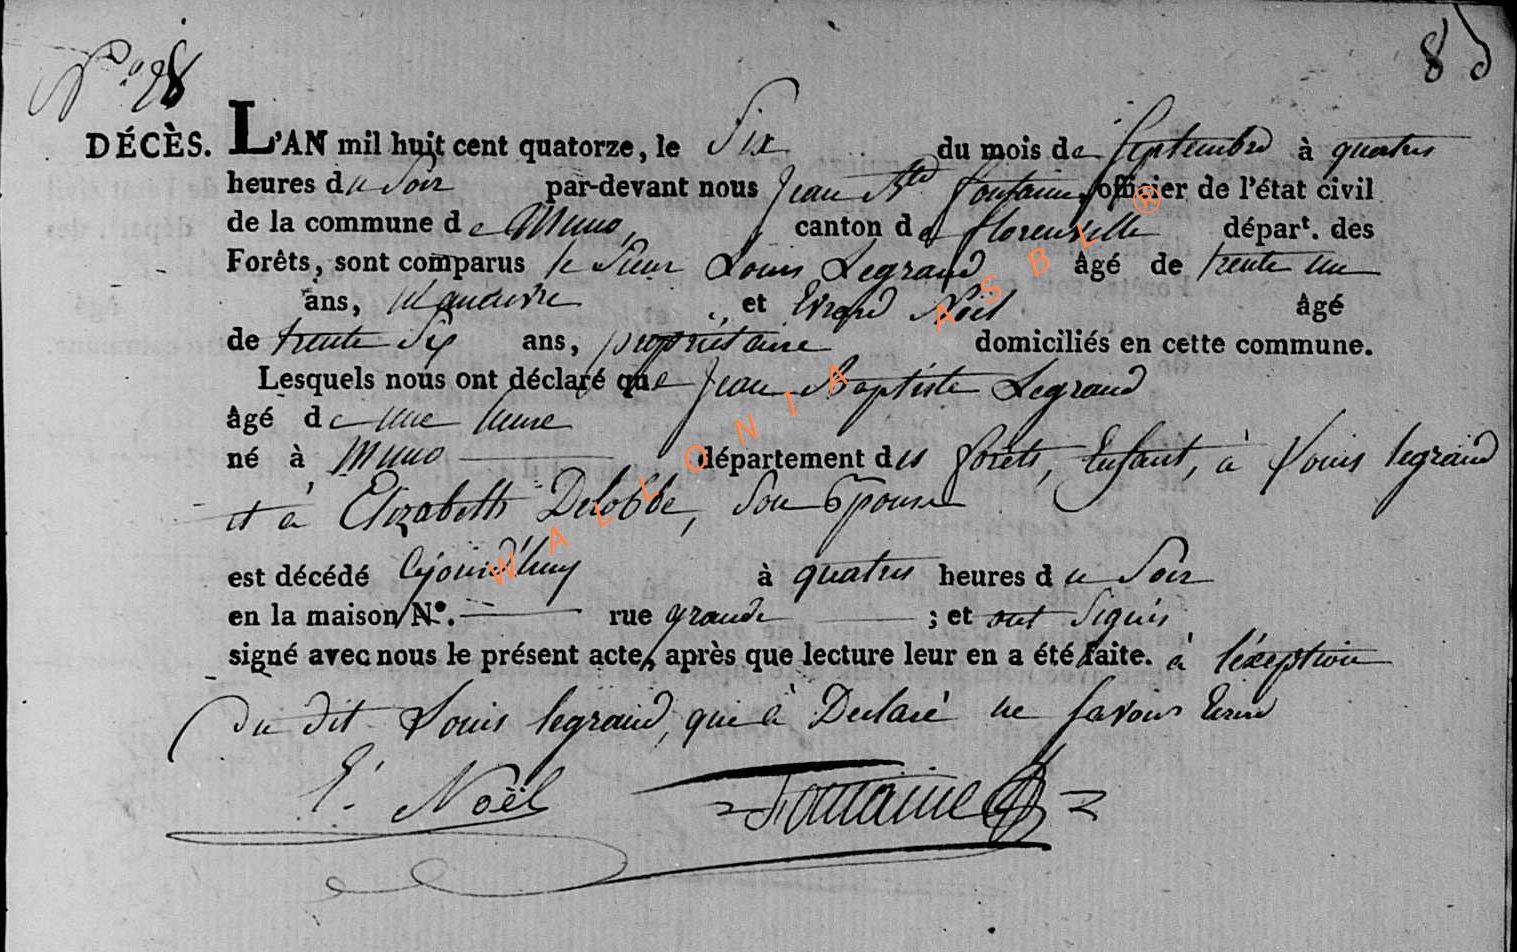 N.º 28
85
DÉCÈS. L'AN mil huit cent quatorze, le Six du mois de Septembre à quatres
heures du Soir par-devant nous Jean Bte fontaine, officier de l'état civil
de la commune de Muno, canton de florenville départ. des
Forêts, sont comparus le Sieur Louis Legrand âgé de trente un
ans, Manœuvre et Evrard Noël âgé
de trente Six ans, propriétaire domiciliés en cette commune.
Lesquels nous ont déclaré que Jean Baptiste Legrand
âgé de une heure
né à Muno département des forêts, Enfant, à Louis legrand
et à Elizabeth Delobbe, Son Epouse
est décédé Cejourd'huy à quatres heures du Soir
en la maison N.º rue grande ; et ont Signés
signé avec nous le présent acte, après que lecture leur en a été faite. à l'éxeption
Du dit Louis legrand, qui à Declaré ne savoir Ecrire
E. Noël Fontaine
WALLONIA ASBL ®